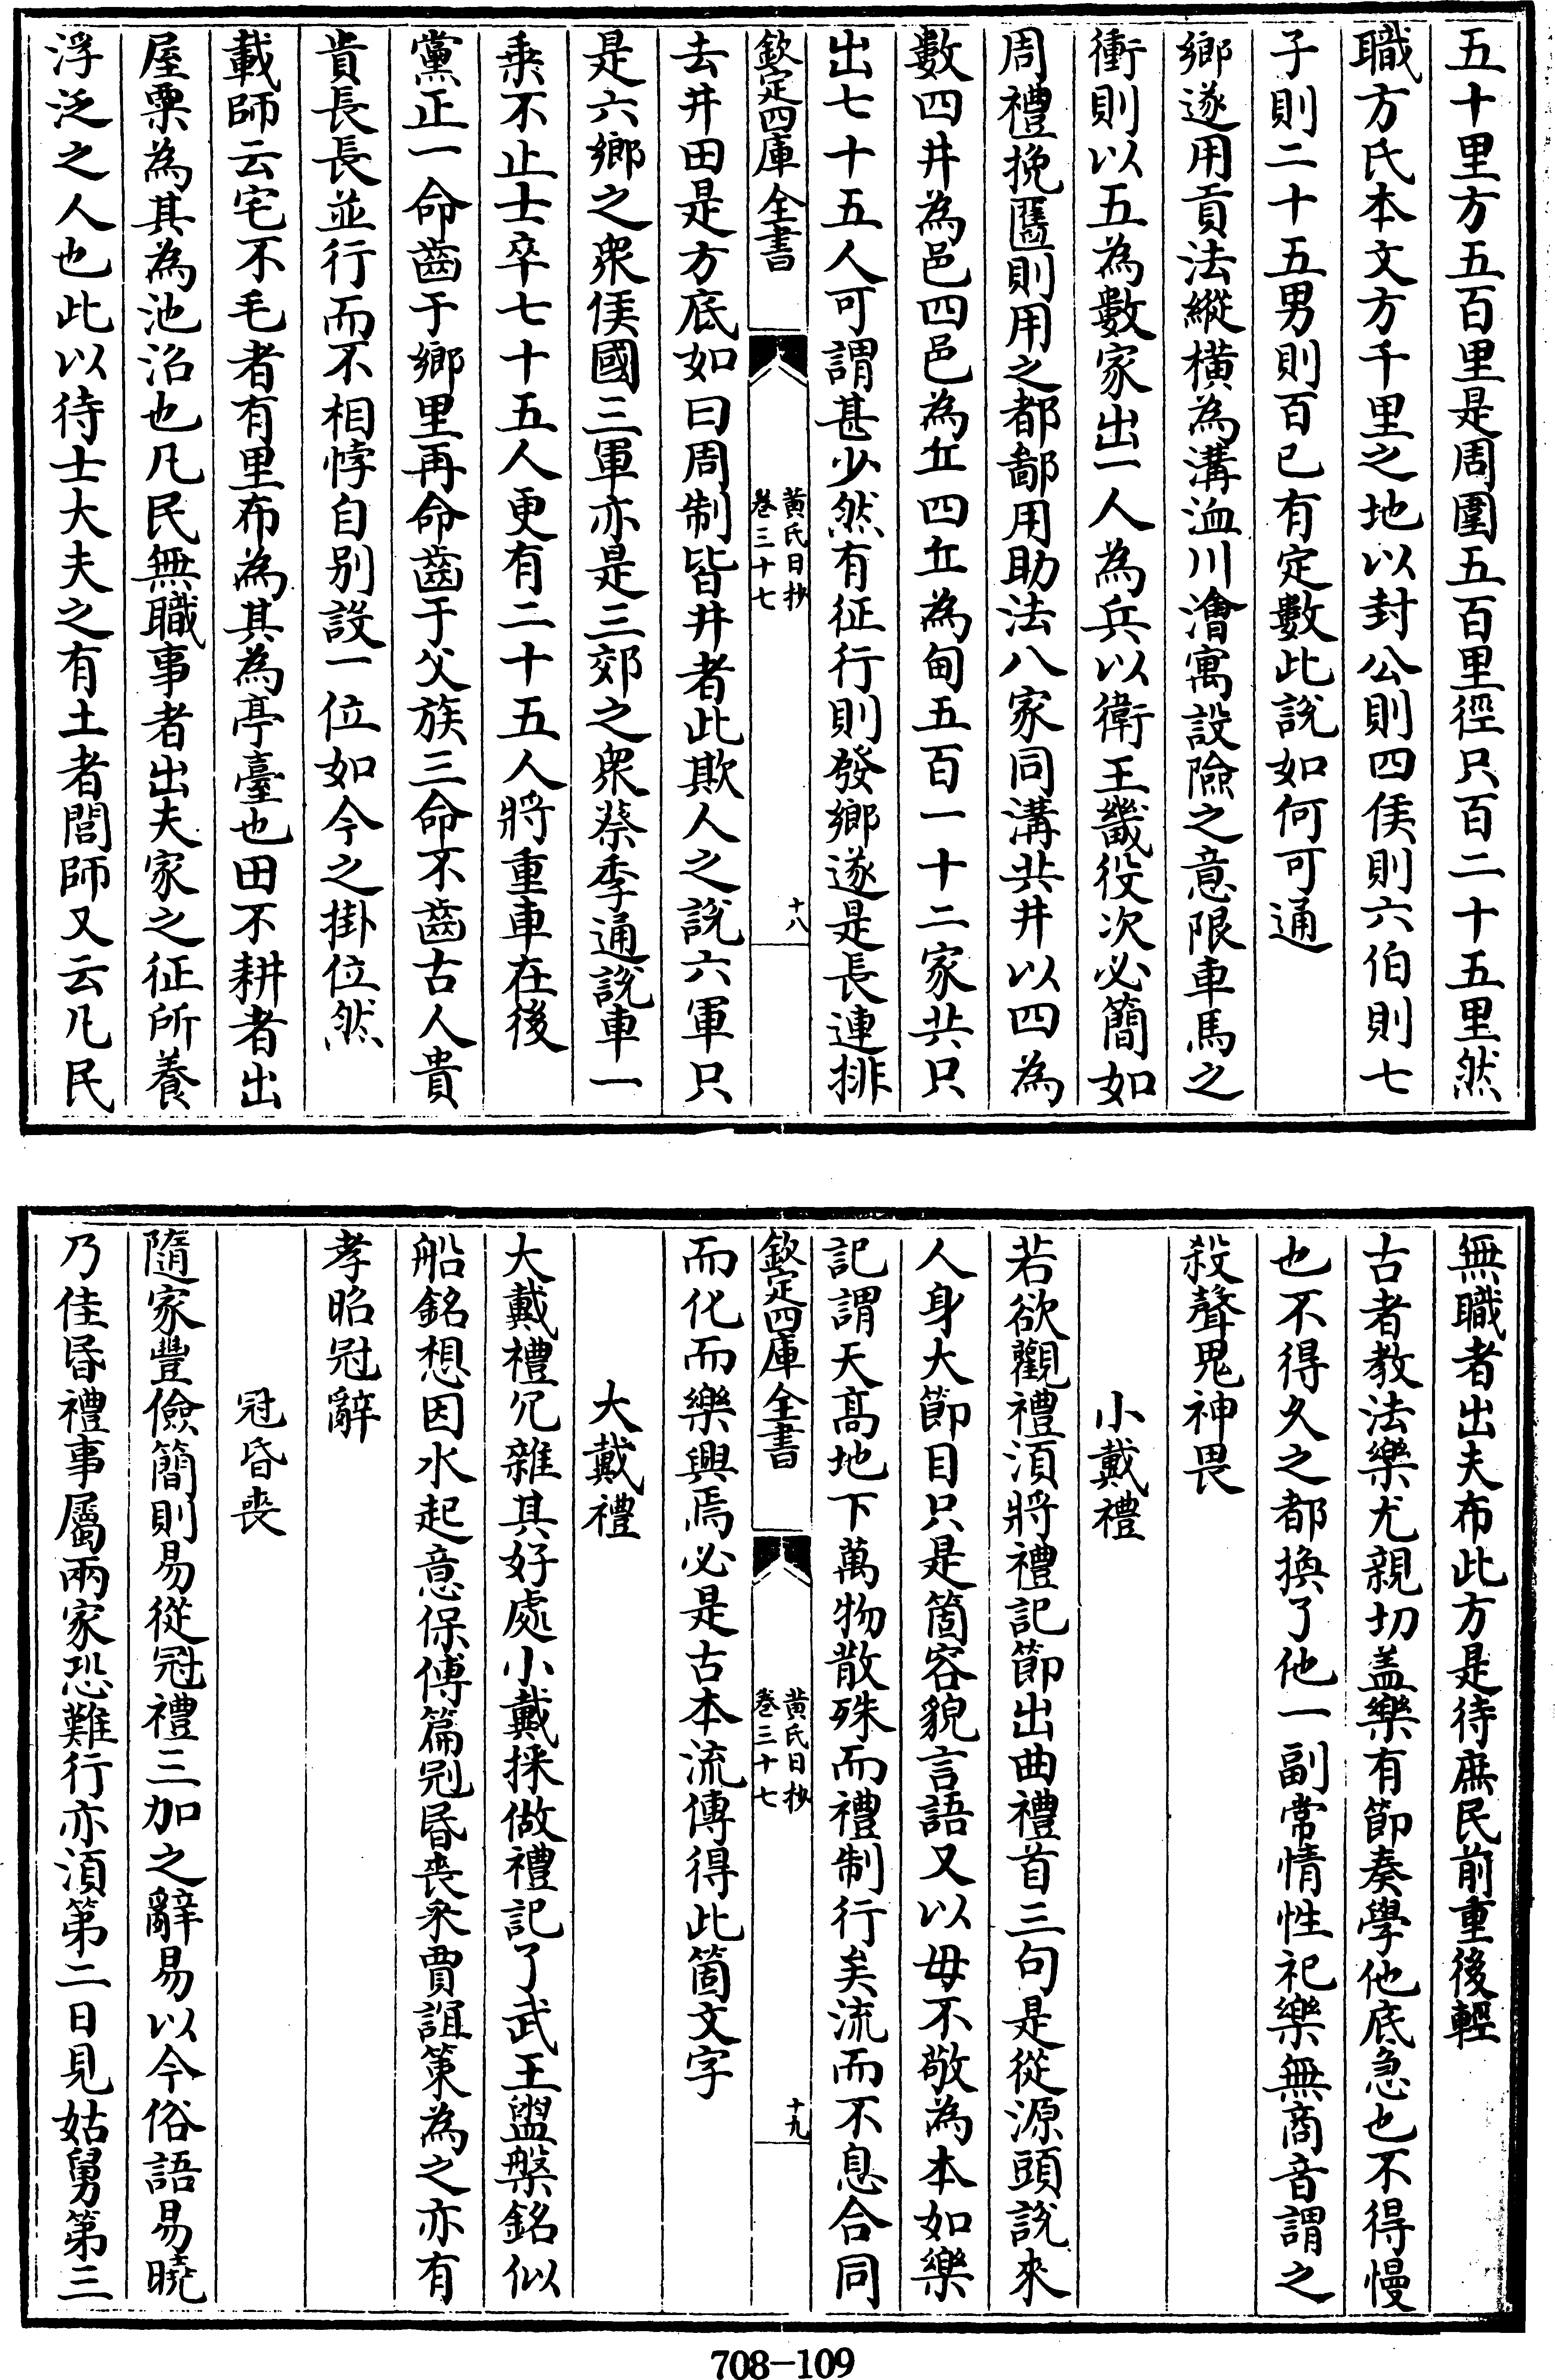 五十里方五百里是周圍五百里徑只百二十五里然
職方氏本文方千里之地以封公則四侯則六伯則七
子則二十五男則百已有定數此說如何可通
鄉遂用貢法縱橫為溝洫川澮寓設險之意限車馬之
衝則以五為數家出一人為兵以衛王畿役次必簡如
周禮挽匶則用之都鄙用助法八家同溝共井以四為
數四井為邑四邑為丘四丘為甸五百一十二家共只
出七十五人可謂甚少然有征行則發鄉遂是長連排
欽定四庫全書
黃氏日抄
卷三十七
十八
去井田是方底如曰周制皆井者此欺人之說六軍只
是六鄉之衆侯國三軍亦是三郊之衆蔡季通說車一
乘不止士卒七十五人更有二十五人將重車在後
黨正一命齒于鄉里再命齒于父族三命不齒古人貴
貴長長並行而不相悖自別設一位如今之掛位然
載師云宅不毛者有里布為其為亭臺也田不耕者出
屋粟為其為池沼也凡民無職事者出夫家之征所養
浮泛之人也此以待士大夫之有土者閭師又云凡民
無職者出夫布此方是待庶民前重後輕
古者教法樂尤親切盖樂有節奏學他底急也不得慢
也不得久之都換了他一副常情性祀樂無商音謂之
殺聲鬼神畏
小戴禮
若欲觀禮須將禮記節出曲禮首三句是從源頭說來
人身大節目只是箇容貌言語又以毋不敬為本如樂
記謂天高地下萬物散殊而禮制行矣流而不息合同
欽定四庫全書
黃氏日抄
卷三十七
十九
而化而樂興焉必是古本流傳得此箇文字
大戴禮
大戴禮冗雜其好處小戴採做禮記了武王盥槃銘似
船銘想因水起意保傅篇冠昬喪采賈誼策為之亦有
孝昭冠辭
冠昏喪
隨家豐儉簡則易從冠禮三加之辭易以今俗語易曉
乃佳昏禮事屬兩家恐難行亦須第二日見姑舅第三
708-109